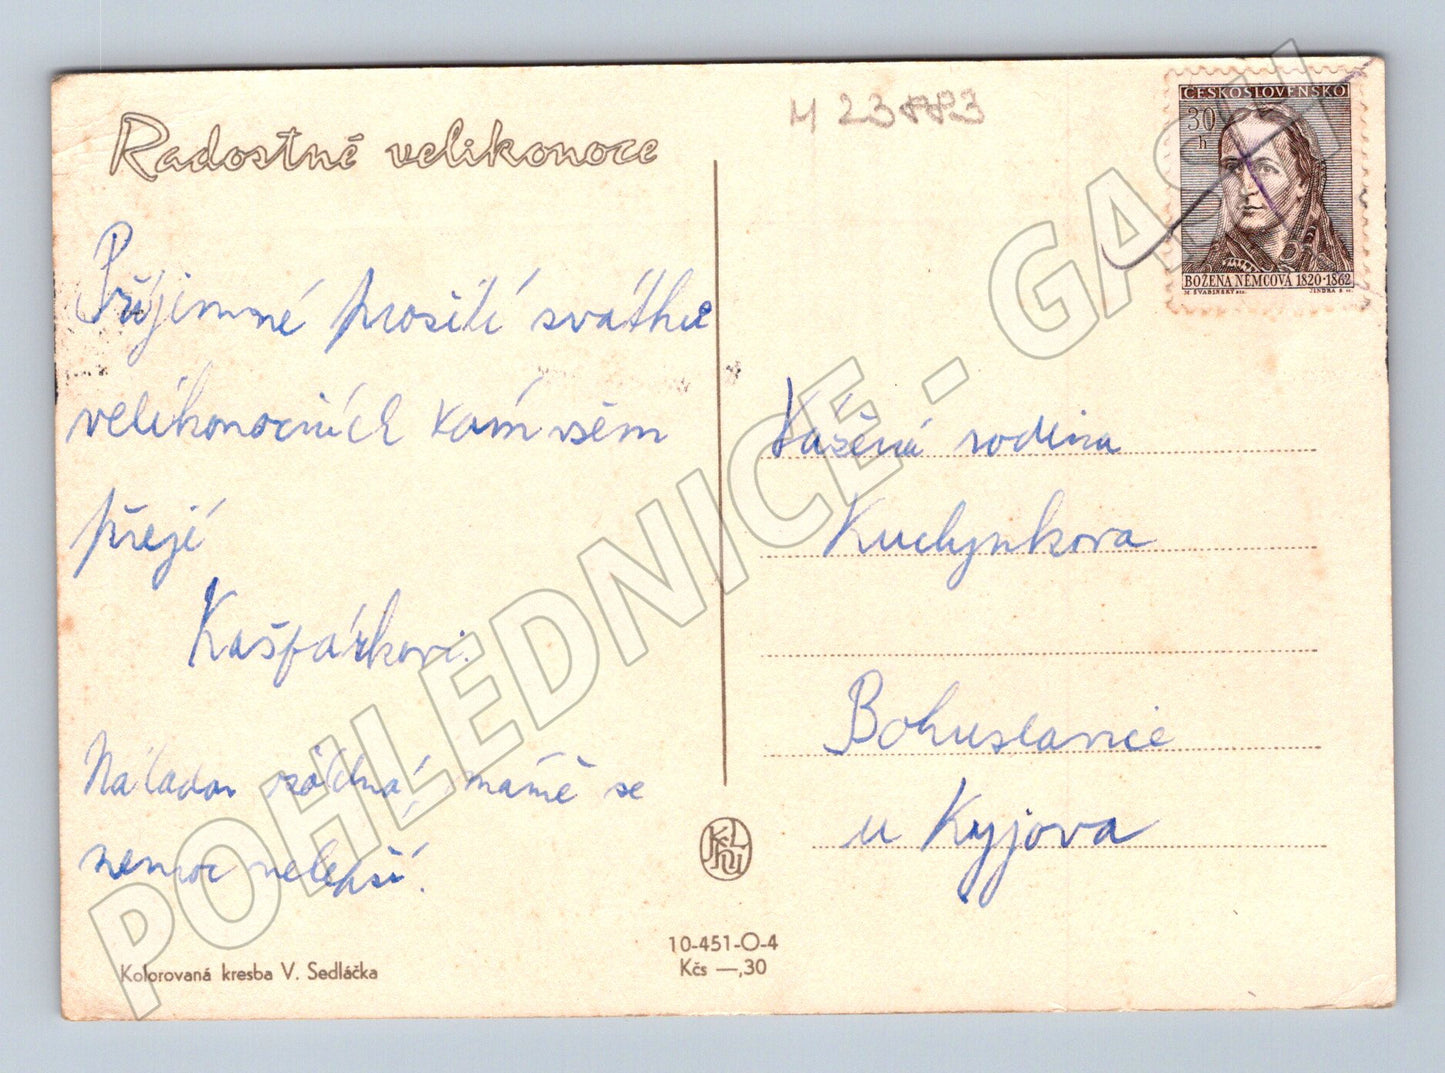 Radostné velikonoce
Příjimné prožití svátků
velikonočních Vám všem
přejí
Kašpárkovi.
Nálada mámě se
nemoc nelepší.
Kolorovaná kresba V. Sedláčka
10-451-O-4
Kčs —,30
M 23883
ČESKOSLOVENSKO
30
h
BOŽENA NĚMCOVÁ 1820-1862
M. ŠVABINSKÝ
JINDRA S
Vážená rodina
Kuchyňkova
Bohuslavice
u Kyjova
POHLEDNICE - GASH